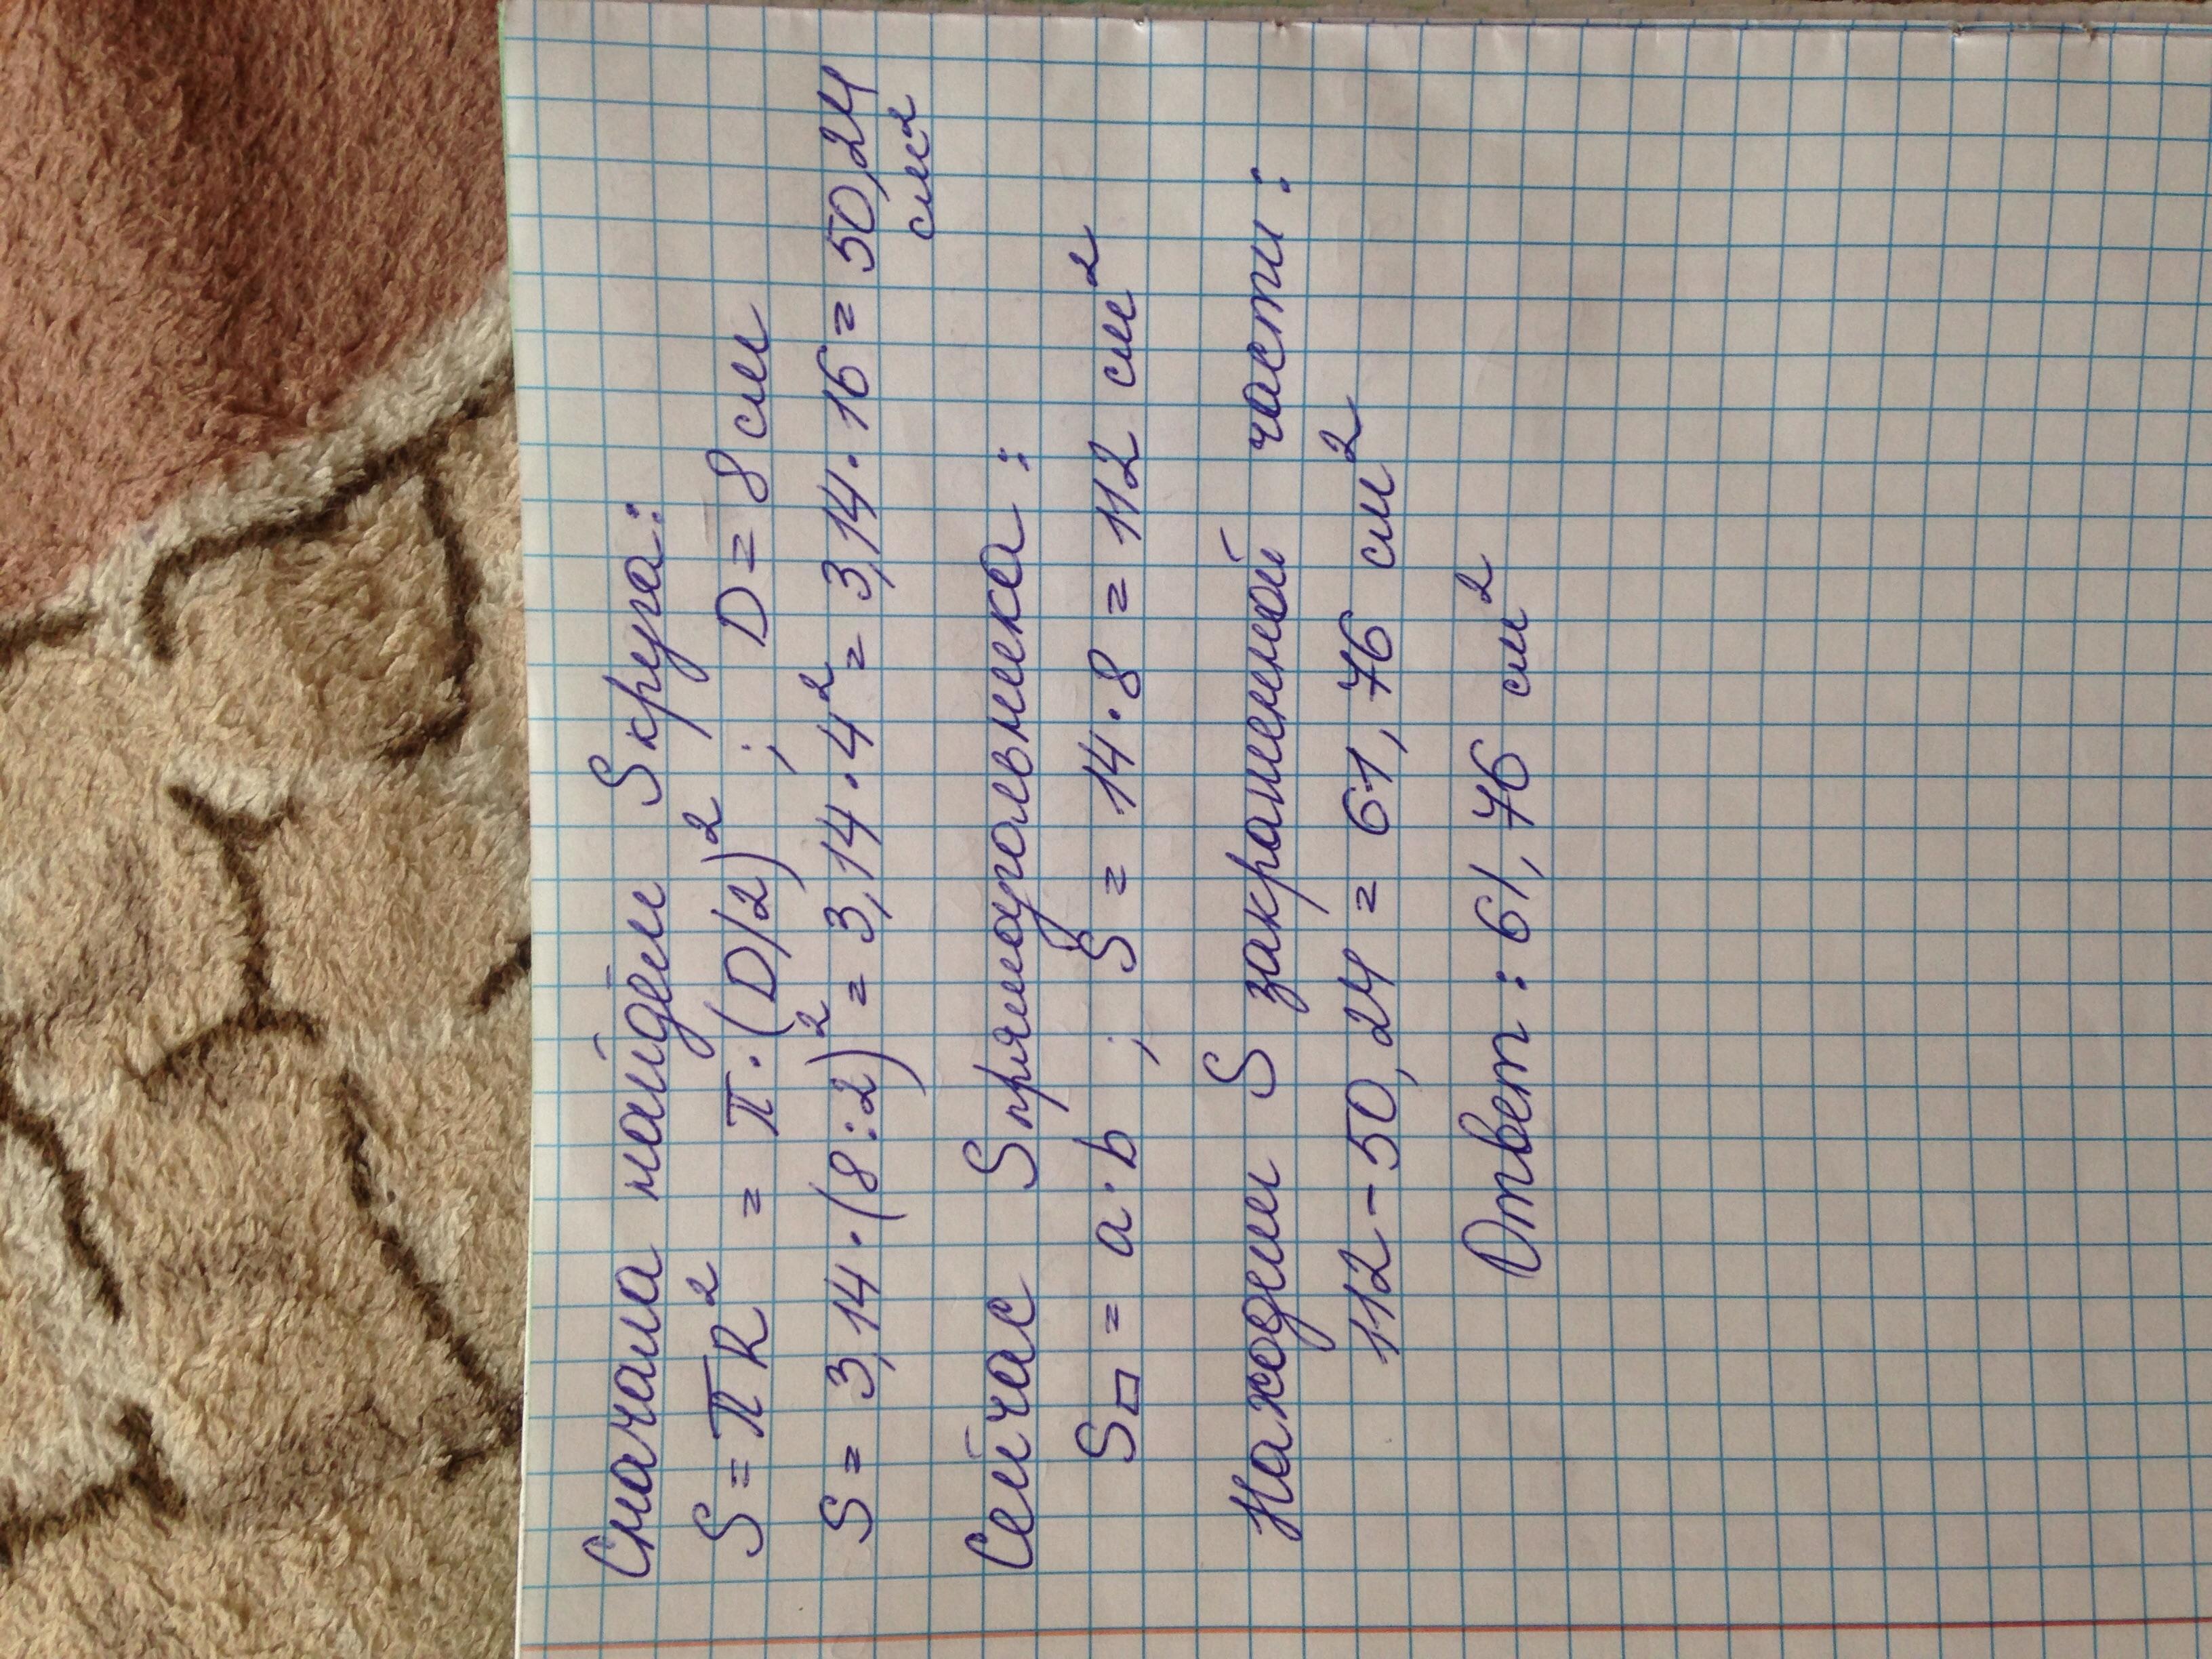 Сначала найдем S круга:
S = πR² = π·(D/2)² ; D = 8 см
S = 3,14·(8:2)² = 3,14·4² = 3,14·16 = 50,24
см²
Сейчас S прямоугольника:
S□ = a·b ; S = 14·8 = 112 см²
Находим S закрашенной части:
112-50,24 = 61,76 см²
Ответ: 61,76 см²